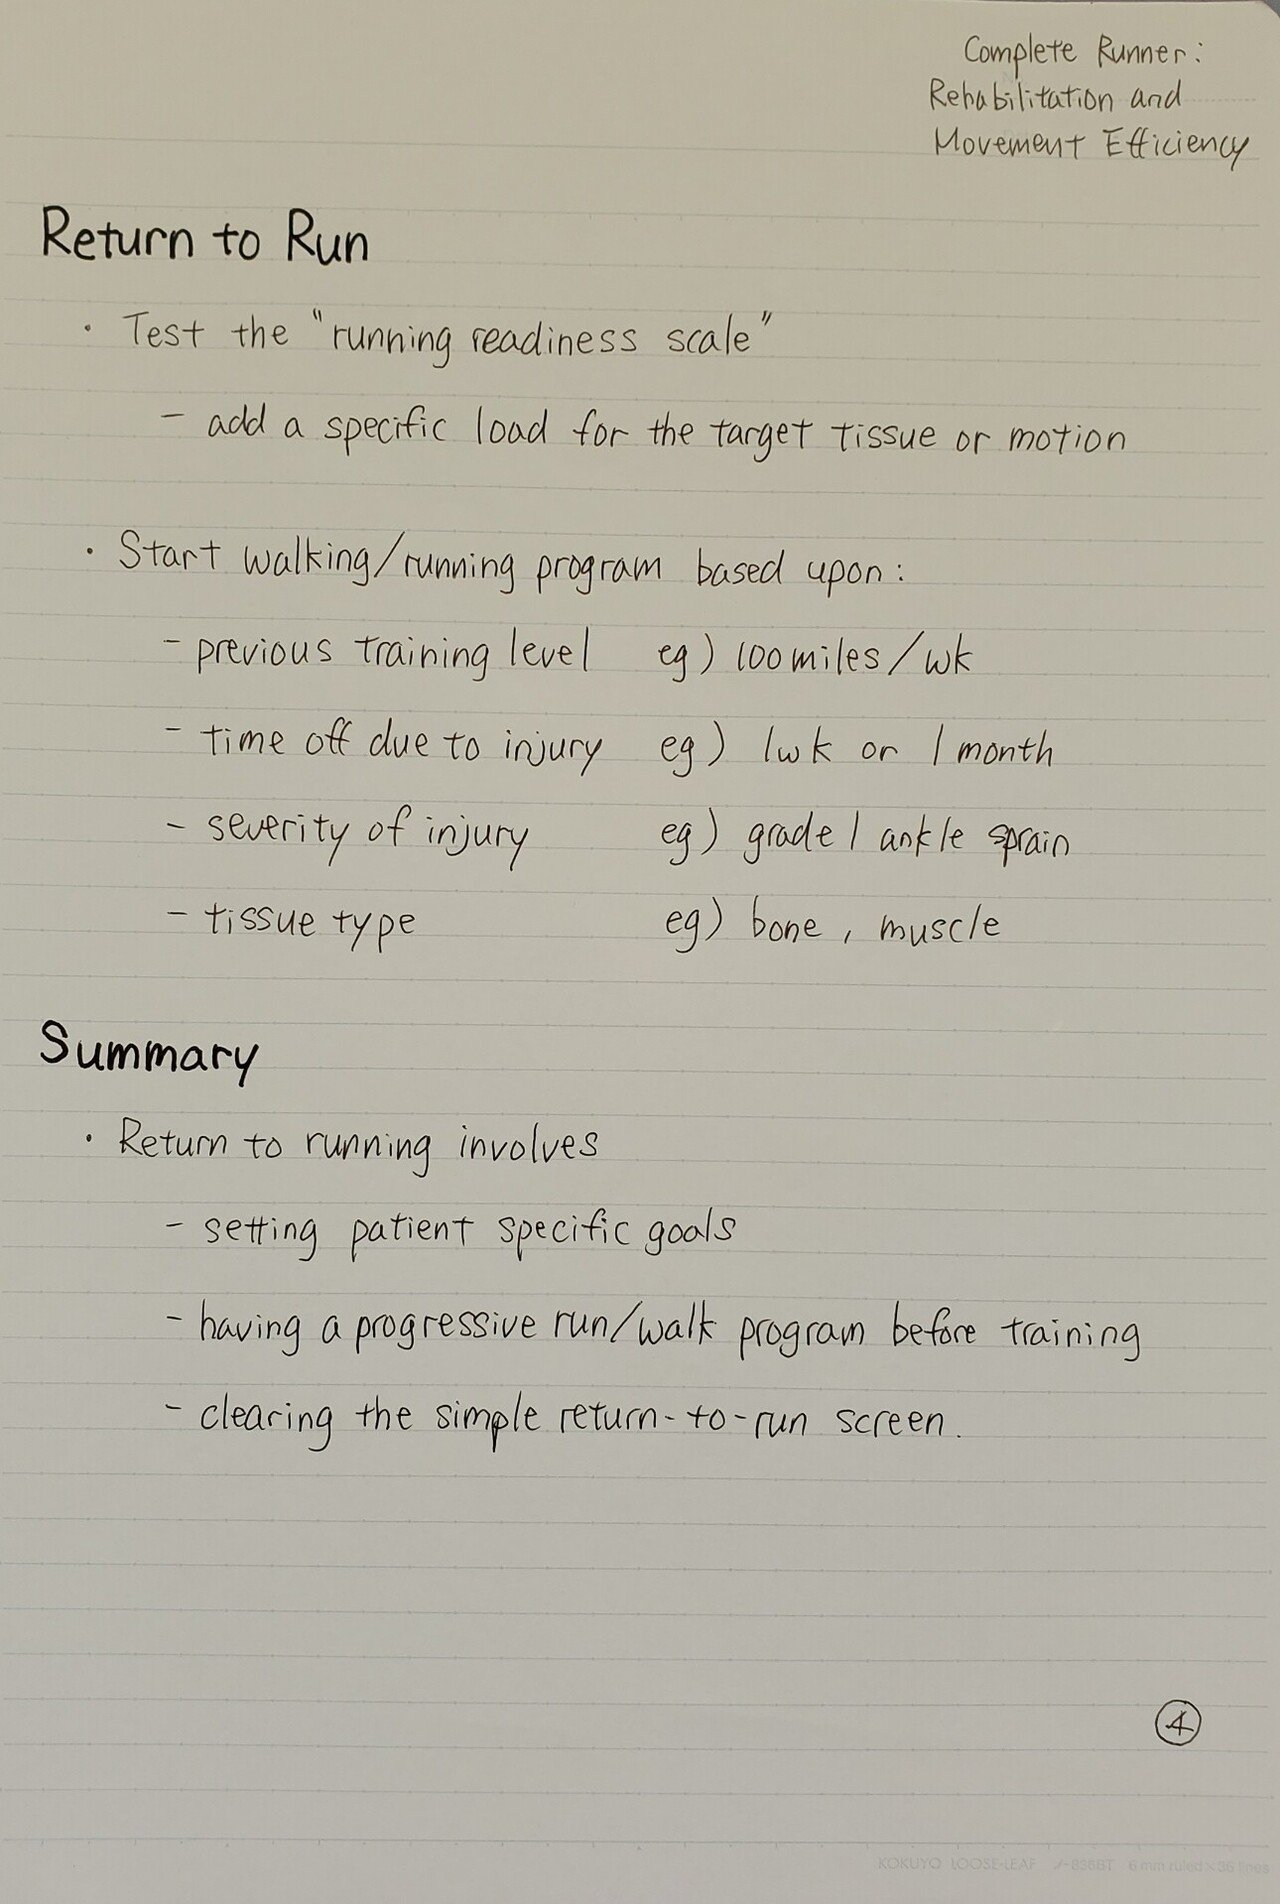 Complete Runner:
Rehabilitation and
Movement Efficiency
Return to Run
· Test the "running readiness scale"
- add a specific load for the target tissue or motion
· Start walking/running program based upon:
- previous training level eg) 100 miles/wk
- time off due to injury eg) 1wk or 1 month
- severity of injury eg) grade 1 ankle sprain
- tissue type eg) bone, muscle
Summary
· Return to running involves
- setting patient specific goals
- having a progressive run/walk program before training
- clearing the simple return-to-run screen.
④
KOKUYO LOOSE-LEAF ノ-836BT 6 mm ruled×36 lines